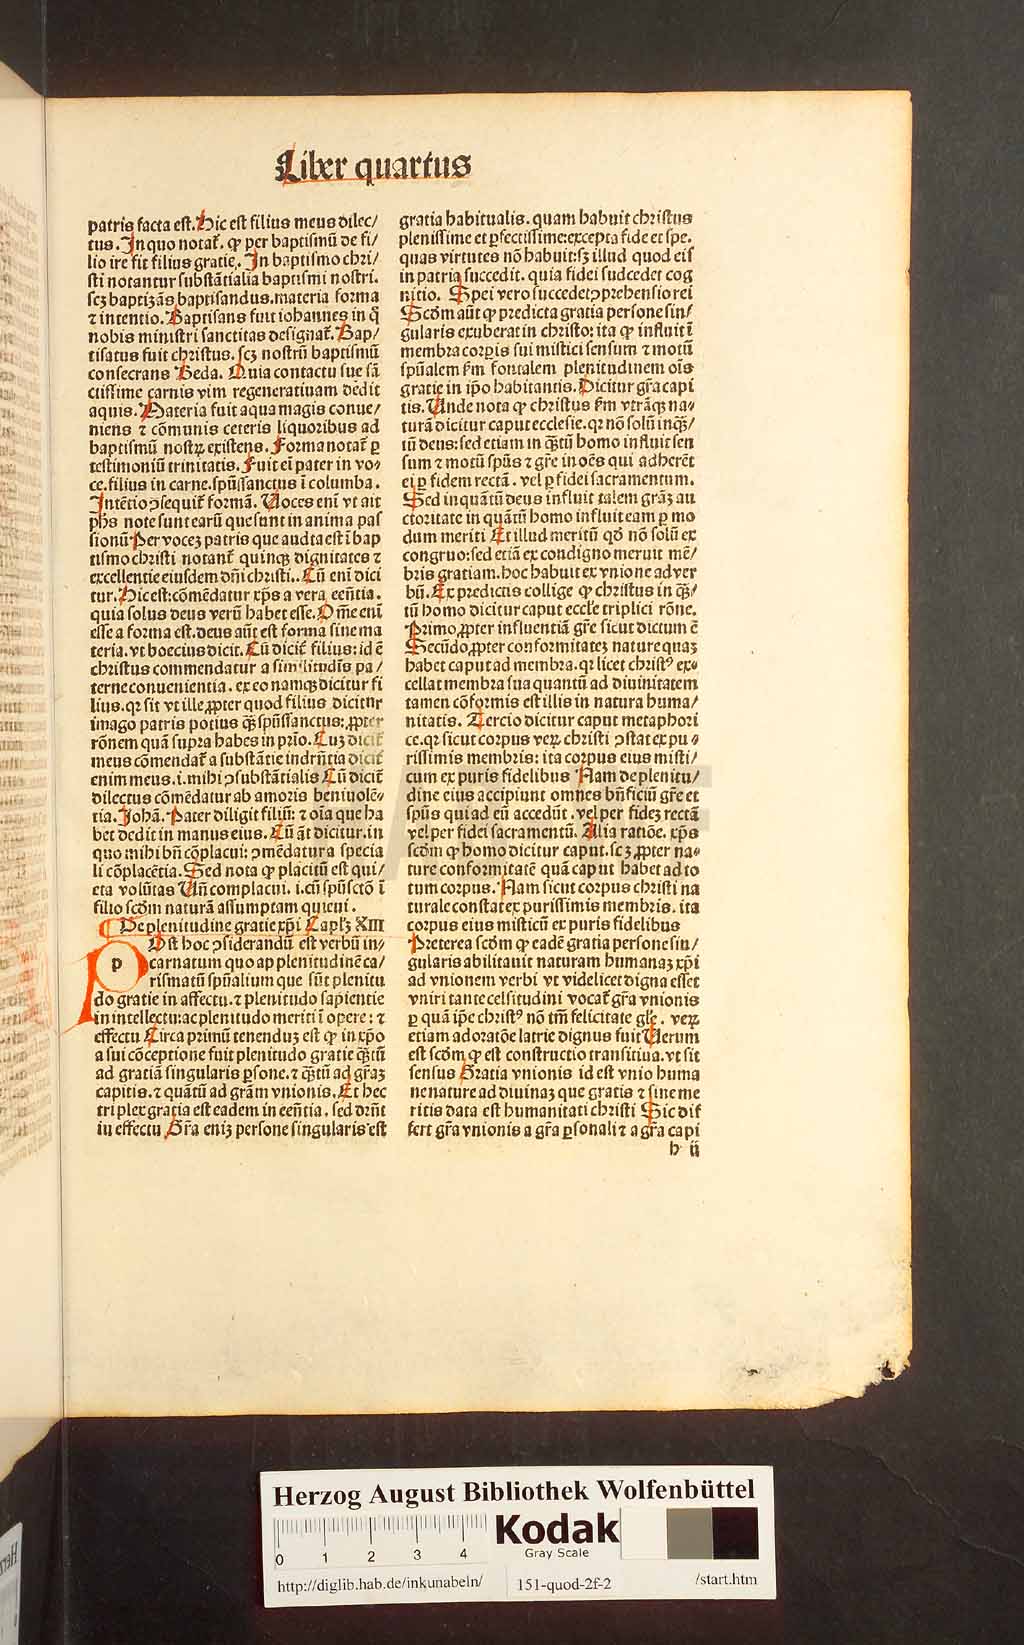 Liber quartus
patris facta est. Hic est filius meus dilec/
tus. In quo notat᷑. ꝙ per baptismū de fi/
lio ire fit filius gratie. In baptismo chri/
sti notantur substātialia baptismi nostri.
scꝫ baptizās baptisandus. materia forma
⁊ intentio. Baptisans fuit iohannes in q̄
nobis ministri sanctitas designat᷑. Bap/
tisatus fuit christus. scꝫ nostrū baptismū
consecrans Beda. Quia contactu sue sā
ctissime carnis vim regeneratiuam dedit
aquis. Materia fuit aqua magis conue/
niens ⁊ cōmunis ceteris liquoribus ad
baptismū nostrꝝ existens. Forma notat᷑ ꝑ
testimoniū trinitatis. Fuit eī pater in vo⸗
ce. filius in carne. spūssanctus ī columba.
Intētio ꝯsequit᷑ formā. Uoces enī vt ait
phs note sunt earū que sunt in anima pas
sionū Per vocez patris que audta est ī bap
tismo christi notant᷑ quinqꝫ dignitates ⁊
excellentie eiusdem dn̄i christi.. Cū enī dici
tur. Hic est: cōmēdatur xp̄s a vera eēntia.
quia solus deus verū habet esse. Om̄e enī
esse a forma est. deus aūt est forma sine ma
teria. vt boecius dicit. Cū dicit᷑ filius: id ē
christus commendatur a similitudīs pa/
terne conuenientia. ex eo namqꝫ dicitur fi
lius. qꝛ sit vt ille, ꝓpter quod filius dicitur
imago patris potius qꝫ̄ spūssanctus: ꝓpter
rōnem quā supra habes in prīo. Cuꝫ dicit᷑
meus cōmendat᷑ a substātie indrn̄tia dicit᷑
enim meus. i. mihi ꝯsubstātialis Cū dicit᷑
dilectus cōmēdatur ab amoris beniuolē⸗
tia. Johā. Pater diligit filiū: ⁊ oīa que ha
bet dedit in manus eius. Cū āt dicitur. in
quo mihi bn̄ cōplacui: ꝯmēdatur a specia
li cōplacētia. Sed nota ꝙ placitū est qui/
eta volūtas Un̄ complacui. i. cū spūsctō ī
filio scdm naturā assumptam quieui.
De plenitudine gratie xp̄i Caplꝫ XIII
p
Ost hoc ꝯsiderandū est verbū in⸗
carnatum quo ap plenitudinē ca/
rismatū spūalium que sūt plenitu
do gratie in affectu. ⁊ plenitudo sapientie
in intellectu: ac plenitudo meriti ī opere: ⁊
effectu Circa primū tenenduꝫ est ꝙ in xp̄o
a sui cōceptione fuit plenitudo gratie qꝫ̄tū
ad gratiā singularis ꝑsone. ⁊ qꝫ̄tū ad gr̄aꝫ
capitis. ⁊ quātū ad grām vnionis. Et hec
triplex gratia est eadem in eēntia. sed drn̄t
in effectu Gr̄a eniꝫ persone singularis est
gratia habitualis. quam habuit christus
plenissime et ꝑfectissime: excepta fide et spe.
quas virtutes nō habuit: sꝫ illud quod eis
in patria succedit. quia fidei sudcedet cog
nitio. Spei vero succedet ꝯprehensio rei
Scdm aūt ꝙ predicta gratia persone sin/
gularis exuberat in christo: ita ꝙ influit ī
membra corꝑis sui mistici sensum ⁊ motū
spūalem fm fontalem plenitudinem oīs
gratie in ip̄o habitantis. Dicitur gr̄a capi
tis. Unde nota ꝙ christus fm vtrāqꝫ na⸗
turā dicitur caput ecclesie. qꝛ nō solū inqꝫ̄/
tū deus: sed etiam in qꝫ̄tū homo influit sen
sum ⁊ motū spūs ⁊ gr̄e in oēs qui adherēt
ei ꝑ fidem rectā. vel ꝑ fidei sacramentum.
Sed inquātū deus influit talem grāꝫ au
ctoritate in quātū homo influit eam ꝑ mo
dum meriti Et illud meritū qd̄ nō solū ex
congruo: sed etiā ex condigno meruit mē/
bris gratiam. hoc habuit ex vnione ad ver
bū. Ex predictis collige ꝙ christus in qꝫ̄/
tū homo dicitur caput eccl'e triplici rōne.
Primo ꝓpter influentiā gr̄e sicut dictum ē
Secūdo ꝓpter conformitatez nature quaꝫ
habet caput ad membra. qꝛ licet christꝰ ex⸗
cellat membra sua quantū ad diuinitatem
tamen cōformis est illis in natura huma/
nitatis. Tercio dicitur caput metaphori
ce. qꝛ sicut corpus veꝝ christi ꝯstat ex pu⸗
rissimis membris: ita corpus eius misti/
cum ex puris fidelibus Nam de plenitu/
dine eius accipiunt omnes bn̄ficiū gr̄e et
spūs qui ad eū accedūt. vel per fidez rectā
vel per fidei sacramentū. Alia ratiōe. xp̄s
scdm ꝙ homo dicitur caput. scꝫ ꝓpter na⸗
ture conformitatē quā caput habet ad to
tum corpus. Nam sicut corpus christi na
turale constat ex purissimis membris. ita
corpus eius misticū ex puris fidelibus
Preterea scdm ꝙ eadē gratia persone sin/
gularis abilitauit naturam humanaꝫ xp̄i
ad vnionem verbi vt videlicet digna esset
vniri tante celsitudini vocat᷑ gr̄a vnionis
ꝑ quā ip̄e christꝰ nō tm̄ felicitate gl'e. veꝝ
etiam adoratōe latrie dignus fuit Uerum
est scdm ꝙ est constructio transitiua. vt sit
sensus Gratia vnionis id est vnio huma
ne nature ad diuinaꝫ que gratis ⁊ sine me
ritis data est humanitati christi Sic dif
fert gr̄a vnionis a gr̄a ꝑsonali ⁊ a gr̄a capi
h ii
Herzog August Bibliothek Wolfenbüttel
Kodak
Gray Scale
0 1 2 3 4
http://diglib.hab.de/inkunabeln/ 151-quod-2f-2 /start.htm